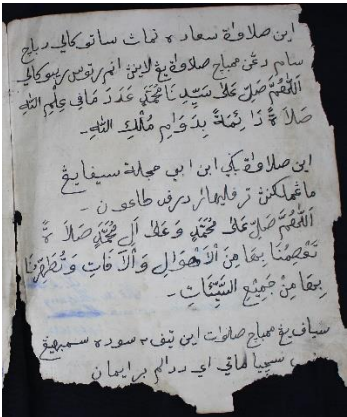 اين صلاواة سعاده تمات ساتو کالي دباچ
سام دڠن ممباچ صلاواة يڠ لاين انم راتوس ريبو کالي
اَللّٰهُمَّ صَلِّ عَلىٰ سَيِّدِنَا مُحَمَّدٍ عَدَدَ مَافِى عِلْمِ اللهِ
صَلاَةً دَائِمَةً بِدَوَامِ مُلْكِ اللهِ ۔
اين صلاواة بݢي ابن ابي حجلة سيفا يڠ
مڠعملکنث ترڤليهارا درڤد طاعون ۔
اَللّٰهُمَّ صَلِّ عَلىٰ مُحَمَّدٍ وَعَلىٰ اٰلِ مُحَمَّدٍ صَلاَةً
تَعْصِمُنَا بِهَا مِنَ الْاَهْوَالِ وَالْاٰفَاتِ وَتُطَهِّرُنَا
بِهَا مِنْ جَمِيْعِ السَّيِّئَاتِ ۔
سياف يڠ ممباچ صلوات اين تيڤ٢ سوده سمبهيڠ
ماتي اي ددالم برايمان